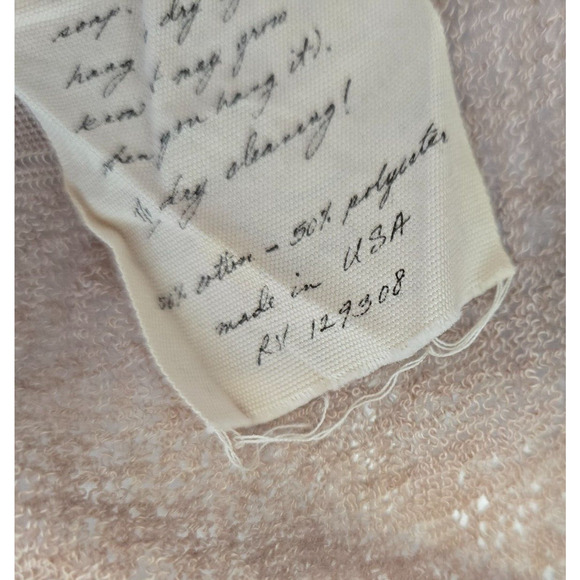 soap. dry
hang (may grow
when you hang it).
dry cleaning!
50% cotton - 50% polyester
made in USA
RN 129308